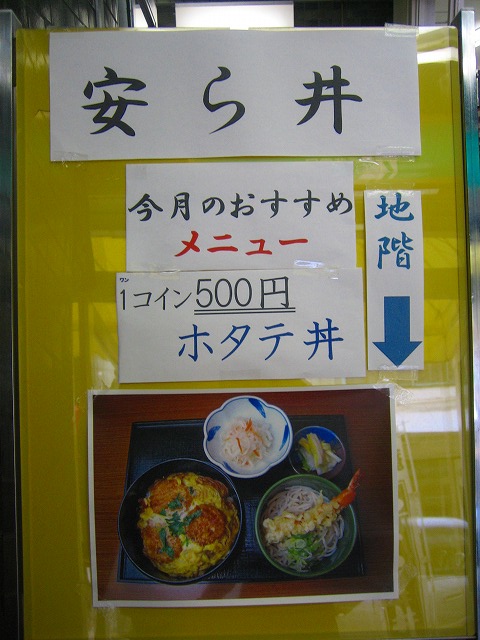 安ら井
今月のおすすめ
メニュー
ワン
1コイン 500円
ホタテ丼
地階